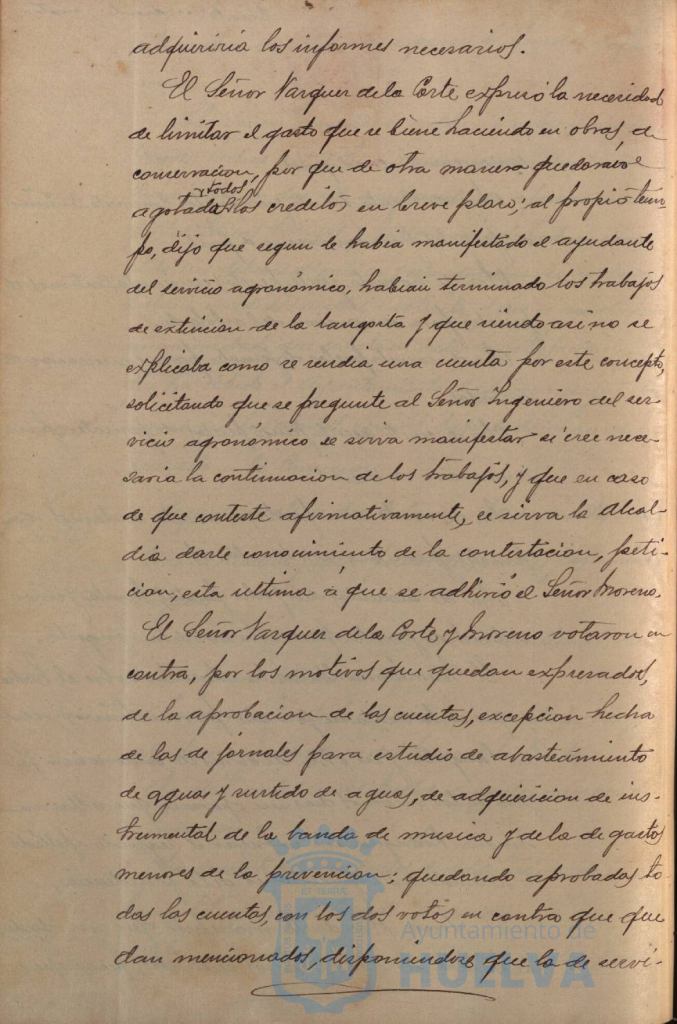 adquiriria los informes necesarios.
El Señor Vazquez de la Corte expresó la necesidad
de limitar el gasto que se biene haciendo en obras, de
conservacion, por que de otra manera quedaran
agotados todos los creditos en breve plazo; al propio tiem-
po, dijo que segun le habia manifestado el ayudante
del servicio agronómico, habian terminado los trabajos
de extincion de la langosta y que siendo asi no se
explicaba como se rendia una cuenta por este concepto,
solicitando que se pregunte al Señor Ingeniero del ser-
vicio agronómico se sirva manifestar si cree nece-
saria la continuacion de los trabajos, y que en caso
de que conteste afirmativamente, se sirva la Alcal-
dia darle conocimiento de la contestacion, peti-
cion, esta ultima á que se adhirió el Señor Moreno.
El Señor Vazquez de la Corte y Moreno votaron en
contra, por los motivos que quedan expresados,
de la aprobacion de las cuentas, excepcion hecha
de las de jornales para estudio de abastecimiento
de aguas y surtido de aguas, de adquisicion de ins-
trumental de la banda de musica y de la de gastos
menores de la prevencion; quedando aprobadas to-
das las cuentas, con los dos votos en contra que que
dan mencionados, disponiendose que la de servi-
Ayuntamiento de
HUELVA